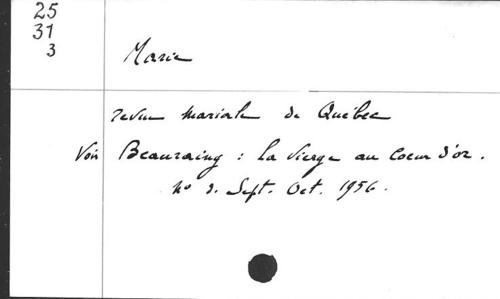 25
31
3
Marie
revue mariale de Québec
Voir Beauraing : la Vierge au Coeur d'or.
No 3. Sept. Oct. 1956.